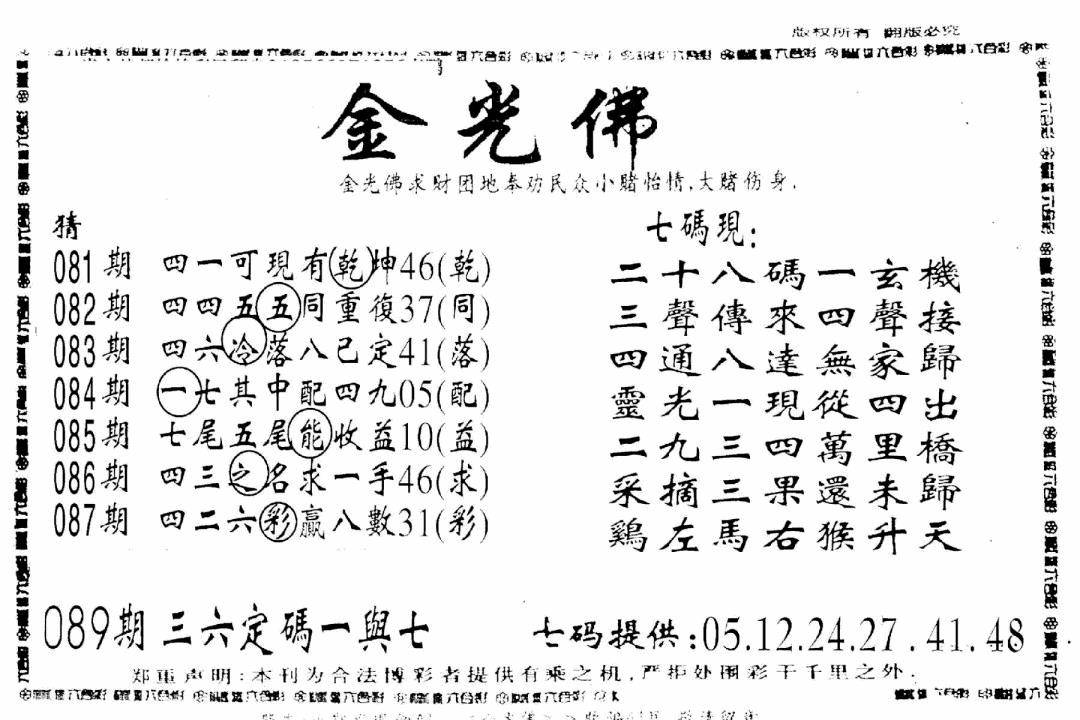 版权所有 翻版必究
金光佛
金光佛求财团地奉劝民众小赌怡情,大赌伤身.
猜
081期 四一可現有乾坤46(乾)
082期 四四五五同重復37(同)
083期 四六冷落八已定41(落)
084期 一七其中配四九05(配)
085期 七尾五尾能收益10(益)
086期 四三之名求一手46(求)
087期 四二六彩贏八數31(彩)
七碼現:
二十八碼一玄機
三聲傳來四聲接
四通八達無家歸
靈光一現從四出
二九三四萬里橋
采摘三果還未歸
鷄左馬右猴升天
089期 三六定碼一與七
七码提供:05.12.24.27.41.48
郑重声明:本刊为合法博彩者提供有乘之机,严拒处围彩于千里之外.